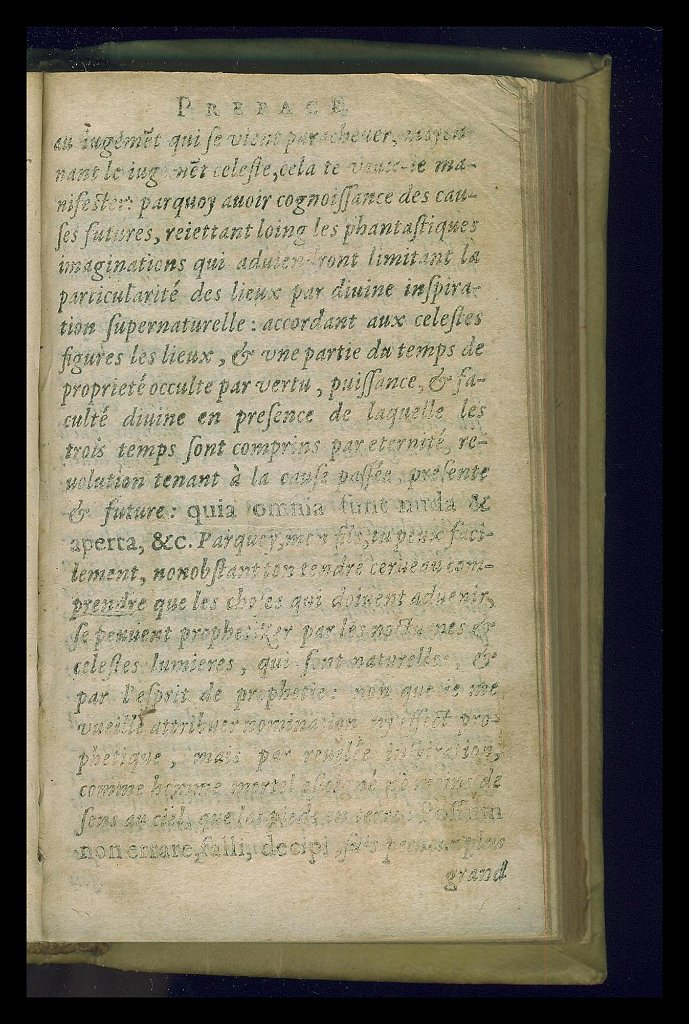 PREFACE
au iugemẽt qui se vient parachever, moyen
nant le iugemẽt celeste, cela te veux-ie ma-
nifester: parquoy auoir cognoiſſance des cau-
ſes futures, reiettant loing les phantaſtiques
imaginations qui aduiendront limitant la
particularité des lieux par diuine inſpira-
tion ſupernaturelle: accordant aux celeſtes
figures les lieux, & vne partie du temps de
proprieté occulte par vertu, puiſſance, & fa-
culté diuine en preſence de laquelle les
trois temps ſont comprins par eternité, re-
uolution tenant à la cauſe paſſée, preſente
& future: quia omnia ſunt nuda &
aperta, &c. Parquoy, mon fils, tu peux faci-
lement, nonobſtant ton tendre cerueau com-
prendre que les choſes qui doiuent aduenir,
ſe peuuent prophetizer par les nocturnes &
celeſtes lumieres, qui ſont naturelles, &
par l'eſprit de prophetie: non que ie me
vueille attribuer nomination ny effect pro-
phetique, mais par reuelée inſpiration,
comme homme mortel eſloigné nõ moins de
ſens au ciel, que les pieds en terre. Poſſum
non errare, falli, decipi ſuis pecheur plus
grand